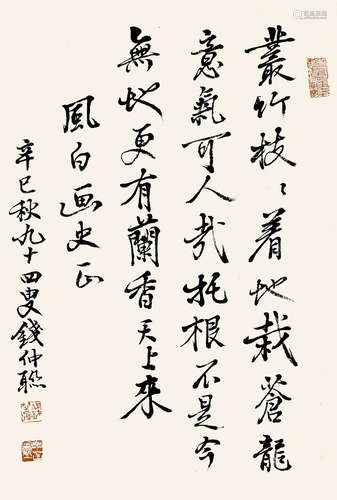 叢竹枝〻着地栽蒼龍
意氣可人哉托根不是今
無地更有蘭香天上來
風白画史正
辛巳秋九十四叟錢仲聯